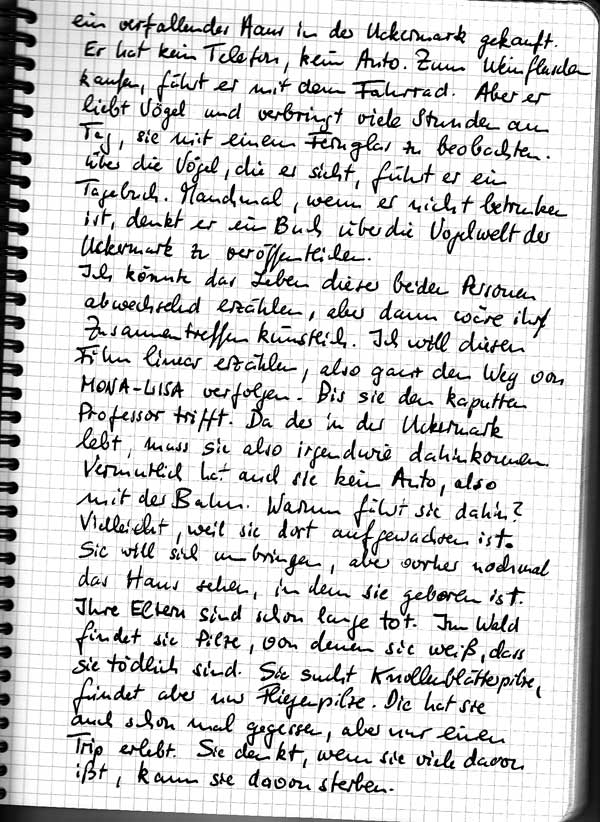 ein verfallendes Haus in der Uckermark gekauft.
Er hat kein Telefon, kein Auto. Zum Weinflaschen
kaufen, fährt er mit dem Fahrrad. Aber er
liebt Vögel und verbringt viele Stunden am
Tag, sie mit einem Fernglas zu beobachten.
über die Vögel, die er sieht, führt er ein
Tagebuch. Manchmal, wenn er nicht betrunken
ist, denkt er ein Buch über die Vogelwelt der
Uckermark zu veröffentlichen.
Ich könnte das Leben dieser beiden Personen
abwechselnd erzählen, aber dann wäre ihr
Zusammentreffen künstlich. Ich will diesen
Film linear erzählen, also ganz den Weg von
MONA-LISA verfolgen. Bis sie den kaputten
Professor trifft. Da der in der Uckermark
lebt, muss sie also irgendwie dahinkommen.
Vermutlich hat auch sie kein Auto, also
mit der Bahn. Warum fährt sie dahin?
Vielleicht, weil sie dort aufgewachsen ist.
Sie will sich umbringen, aber vorher nochmal
das Haus sehen, in dem sie geboren ist.
Ihre Eltern sind schon lange tot. Im Wald
findet sie Pilze, von denen sie weiß, dass
sie tödlich sind. Sie sucht Knollenblätterpilze,
findet aber nur Fliegenpilze. Die hat sie
auch schon mal gegessen, aber nur einen
Trip erlebt. Sie denkt, wenn sie viele davon
ißt, kann sie davon sterben.